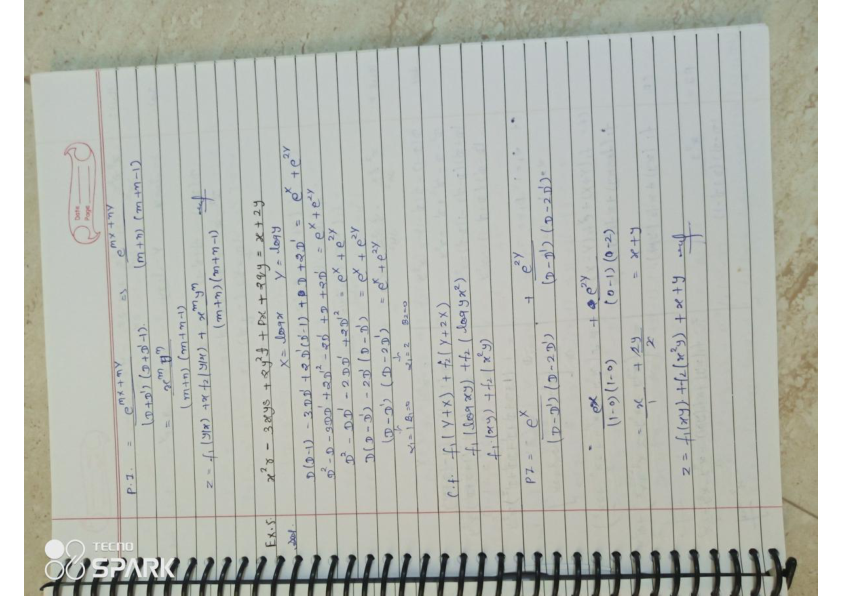 Date
Page
P.I. = e^{mx+ny} / (D+D')(D+D'-1) => e^{mx+ny} / (m+n)(m+n-1)
= x^m y^n / (m+n)(m+n-1)
z = f₁(y/x) + x f₂(y/x) + x^m y^n / (m+n)(m+n-1)
Ex.5 x²r - 3xys + 2y²t + px + 2qy = x + 2y
Sol. X = logx Y = logy
D(D-1) - 3DD' + 2D'(D'-1) + D + 2D' = e^x + e^{2Y}
D² - D - 3DD' + 2D'² - 2D' + D + 2D' = e^x + e^{2Y}
D² - DD' - 2DD' + 2D'² = e^x + e^{2Y}
D(D-D') - 2D'(D-D') = e^x + e^{2Y}
(D-D') (D-2D') = e^x + e^{2Y}
α₁=1 B₁=0 α₂=2 B₂=0
C.f. f₁(Y+X) + f₂(Y+2X)
f₁(logxy) + f₂(logyx²)
f₁(xy) + f₂(x²y)
PI = e^x / (D-D')(D-2D') + e^{2Y} / (D-D')(D-2D')
= e^x / (1-0)(1-0) + e^{2Y} / (0-1)(0-2)
= x/1 + 2y/x = x+y
z = f₁(xy) + f₂(x²y) + x + y
TECNO
SPARK